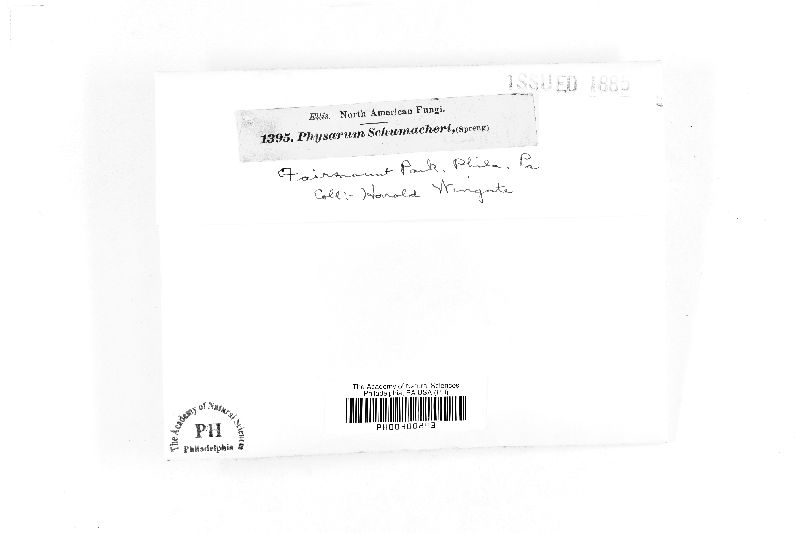 ISSUED 1885
Ellis. North American Fungi.
1395. Physarum Schumacheri, (Spreng)
Fairmount Park, Phila. Pa
Coll:- Harold Wingate
The Academy of Natural Sciences
Philadelphia, PA USA (PH)
The Academy of Natural Sciences
PH
Philadelphia